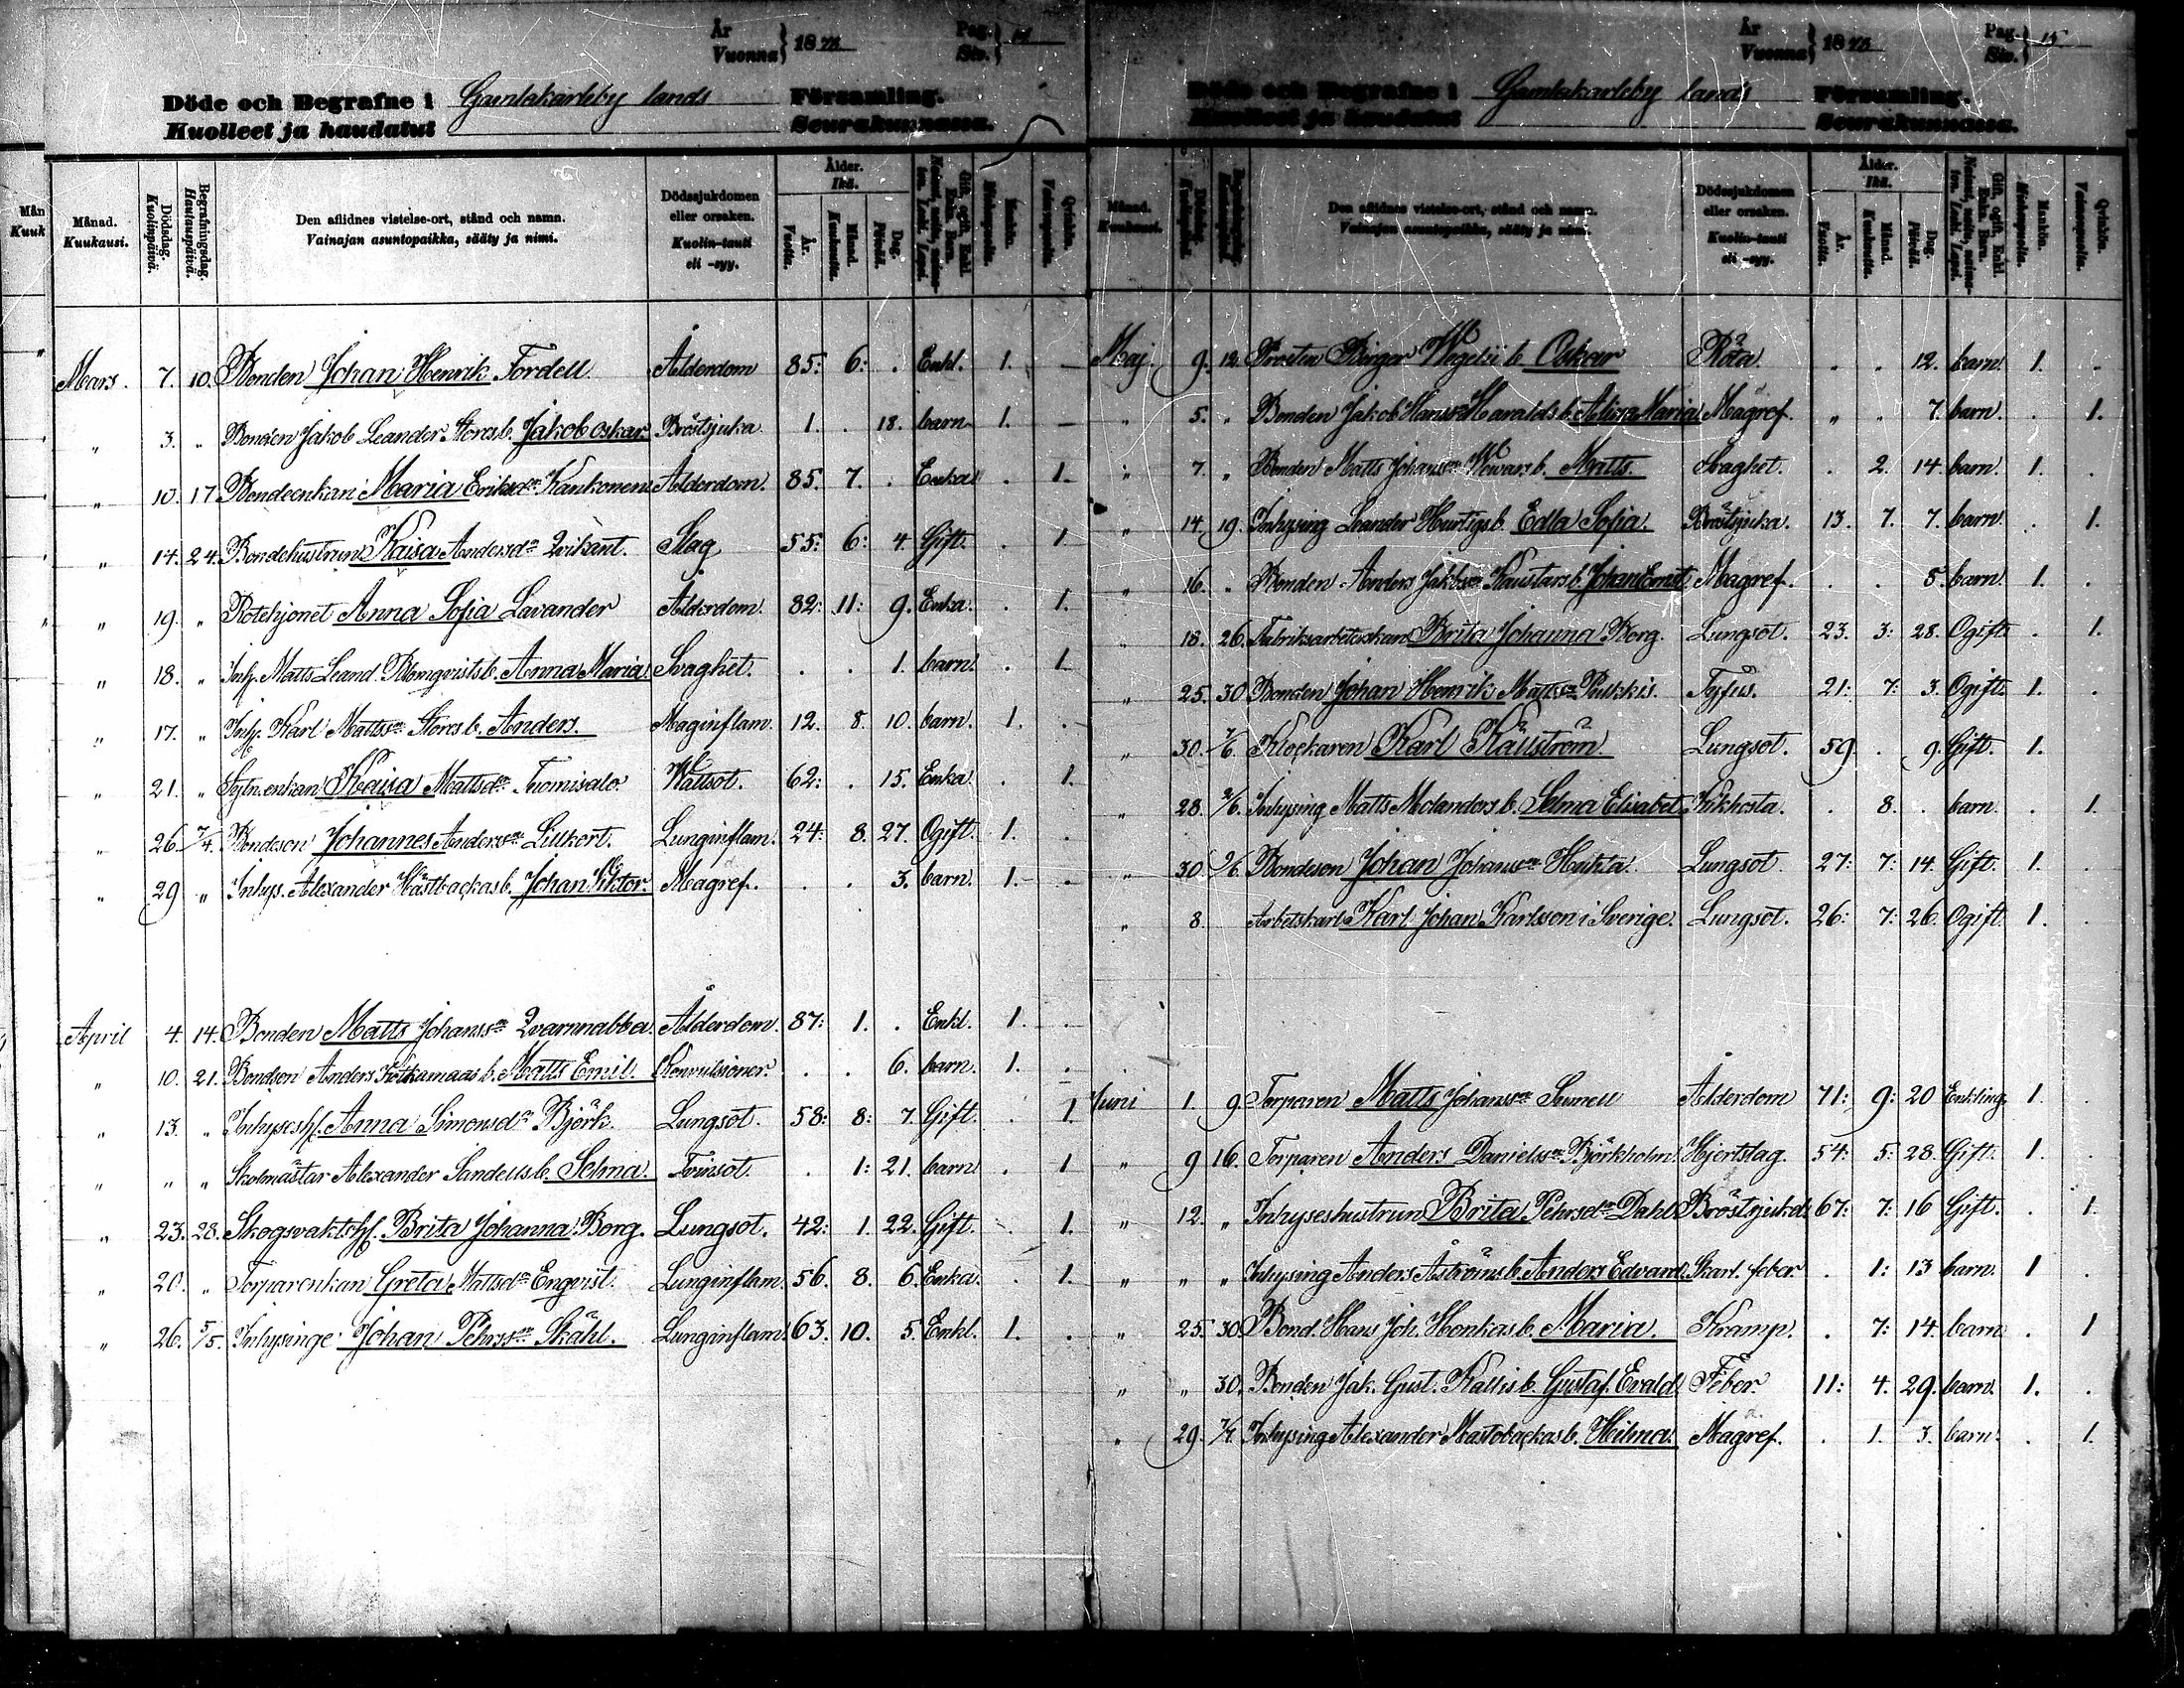 År
Vuonna } 1878 Pag. Siv. } 14
Döde och Begrafne i Gamlakarleby lands Församling.
Kuolleet ja haudatut Seurakunnassa.
Månad. Kuukausi. Dödsdag. Kuolinpäivä. Begrafningsdag. Hautauspäivä. Den aflidnes vistelse-ort, stånd och namn. Vainajan asuntopaikka, sääty ja nimi. Dödssjukdomen eller orsaken. Kuolin-tauti eli -syy. Ålder. Ikä. År. Vuotta. Månad. Kuukautta. Dag. Päivää. Gift, ogift, Enkl. Enka. Barn. Mankön. Miehenpuolta. Qvinkön. Vaimonpuolta.
Mars. 7. 10. Bonden Johan Henrik Fordell. Ålderdom 85: 6: . Enkl. 1. –
" 3. " Bonden Jakob Leander Storsb. Jakob Oskar Bröstsjuka 1. . 18. barn 1. –
" 10. 17. Bondeenkan Maria Eriksdr Kankonen Ålderdom. 85. 7. . Enka . 1.
" 14. 24. Bondehustrun Kaisa Andersdr Qvikant. Slag 55: 6: 4. Gift. . 1
" 19. " Rotehjonet Anna Sofia Lavander Ålderdom. 82: 11: 9. Enka. . 1.
" 18. " Inh. Matts Leand. Blomqvists b. Anna Maria. Svaghet. . . 1. barn. . 1
" 17. " Inh. Karl Mattsson Stores b. Anders. Maginflam. 12. 8. 10. barn. 1. .
" 21. " enkan Kaisa Mattsdr Tuomisalo. Wattsot. 62: . 15. Enka. . 1.
" 26. 7/4. Bondeson Johannes Andersson Lillkort. Lunginflam. 24: 8. 27. Ogift. 1. .
" 29 " Inhys. Alexander Hästbackas b. Johan Viktor. Magref. . . 3. barn. 1. –
April 4. 14. Bonden Matts Johansson Qvarnabba. Ålderdom. 87: 1. . Enkl. 1. .
" 10. 21. Bondson Anders b. Matts Emil. Konvulsioner. . . 6. barn. 1. .
" 13. " Inhyseshf. Anna Simonsdr Björk. Lungsot. 58: 8: 7. Gift. . 1
" " " Skolmästar Alexander Sandells b. Selma. Tvinsot. . 1: 21. barn . 1
" 23. 28. Skogsvaktshf. Brita Johanna Borg. Lungsot. 42: 1. 22. Gift. . 1.
" 20. " Torparenkan Greta Mattsdr Enqvist. Lunginflam. 56. 8. 6. Enka. . 1.
" 26. 5/5. Inhysinge Johan Pehrsson Skåhl. Lunginflam. 63. 10. 5. Enkl. 1. .
År
Vuonna } 1878 Pag. Siv. } 15
Döde och Begrafne i Gamlakarleby lands Församling.
Kuolleet ja haudatut Seurakunnassa.
Månad. Kuukausi. Dödsdag. Kuolinpäivä. Den aflidnes vistelse-ort, stånd och namn. Vainajan asuntopaikka, sääty ja nimi. Dödssjukdomen eller orsaken. Kuolin-tauti eli -syy. Ålder. Ikä. År. Vuotta. Månad. Kuukautta. Dag. Päivää. Gift, ogift, Enkl. Enka. Barn. Mankön. Miehenpuolta. Qvinkön. Vaimonpuolta.
Maj. 9. 12. Prosten Birger Wegelii b. Oskar Röta. . . 12. barn. 1. .
" 5. " Bonden Jakob Hansson Haralds b. Alina Maria Magref. " . 7. barn. . 1.
" 7. " Bonden Matts Johansson b. Matts. Svaghet. . 2. 14. barn. 1. .
" 14. 19. Inhysing Leander Hurtigs b. Edla Sofia. Bröstsjuka. 13. 7. 7. barn. . 1.
" 16. " Bonden Anders Jakobsson Kaustars b. Johan Ernst. Magref. . . 5. barn 1. .
" 18. 26. Fabriksarbeterskan Brita Johanna Borg. Lungsot. 23. 3: 28. Ogift. . 1.
" 25. 30 Bonden Johan Henrik Mattsson Pulkkis. Tyfus. 21: 7: 3. Ogift. 1. .
" 30. 7/6. Klockaren Karl Källström. Lungsot. 59. . 9. Gift. 1.
" 28. 2/6. Inhysing Matts Molanders b. Selma Elisabet Kikhosta. . 8. . barn. . 1.
" 30 2/6 Bondeson Johan Johansson Huhta. Lungsot 27: 7: 14. Gift. 1. .
" 8. Arbetskarl Karl Johan Karlsson i Sverige. Lungsot. 26: 7: 26. Ogift. 1. .
Juni 1. 9. Torparen Matts Johansson Ålderdom 71: 9: 20 Enkling. 1. .
" 9 16. Torparen Anders Danielsson Björkholm. Hjertslag. 54: 5: 28. Gift. 1. .
" 12. " Inhyseshustrun Brita Pehrsdr Dahl Bröstsjukd. 67: 7: 16 Gift. . 1.
" " " Inhysing Anders Åströms b. Anders Edvard. Skarl. feber. . 1: 13 barn. 1 .
" 25. 30. Bond. Hans Joh. Honkas b. Maria. Kramp. . 7: 14. barn . 1
" " 30. Bonden Jak. Gust. Kallis b. Gustaf Evald. Feber. 11: 4. 29. barn. 1. .
" 29. 7/7. Inhysing Alexander Hästbackas b. Hilma. Magref. . 1. 3. barn. . 1.